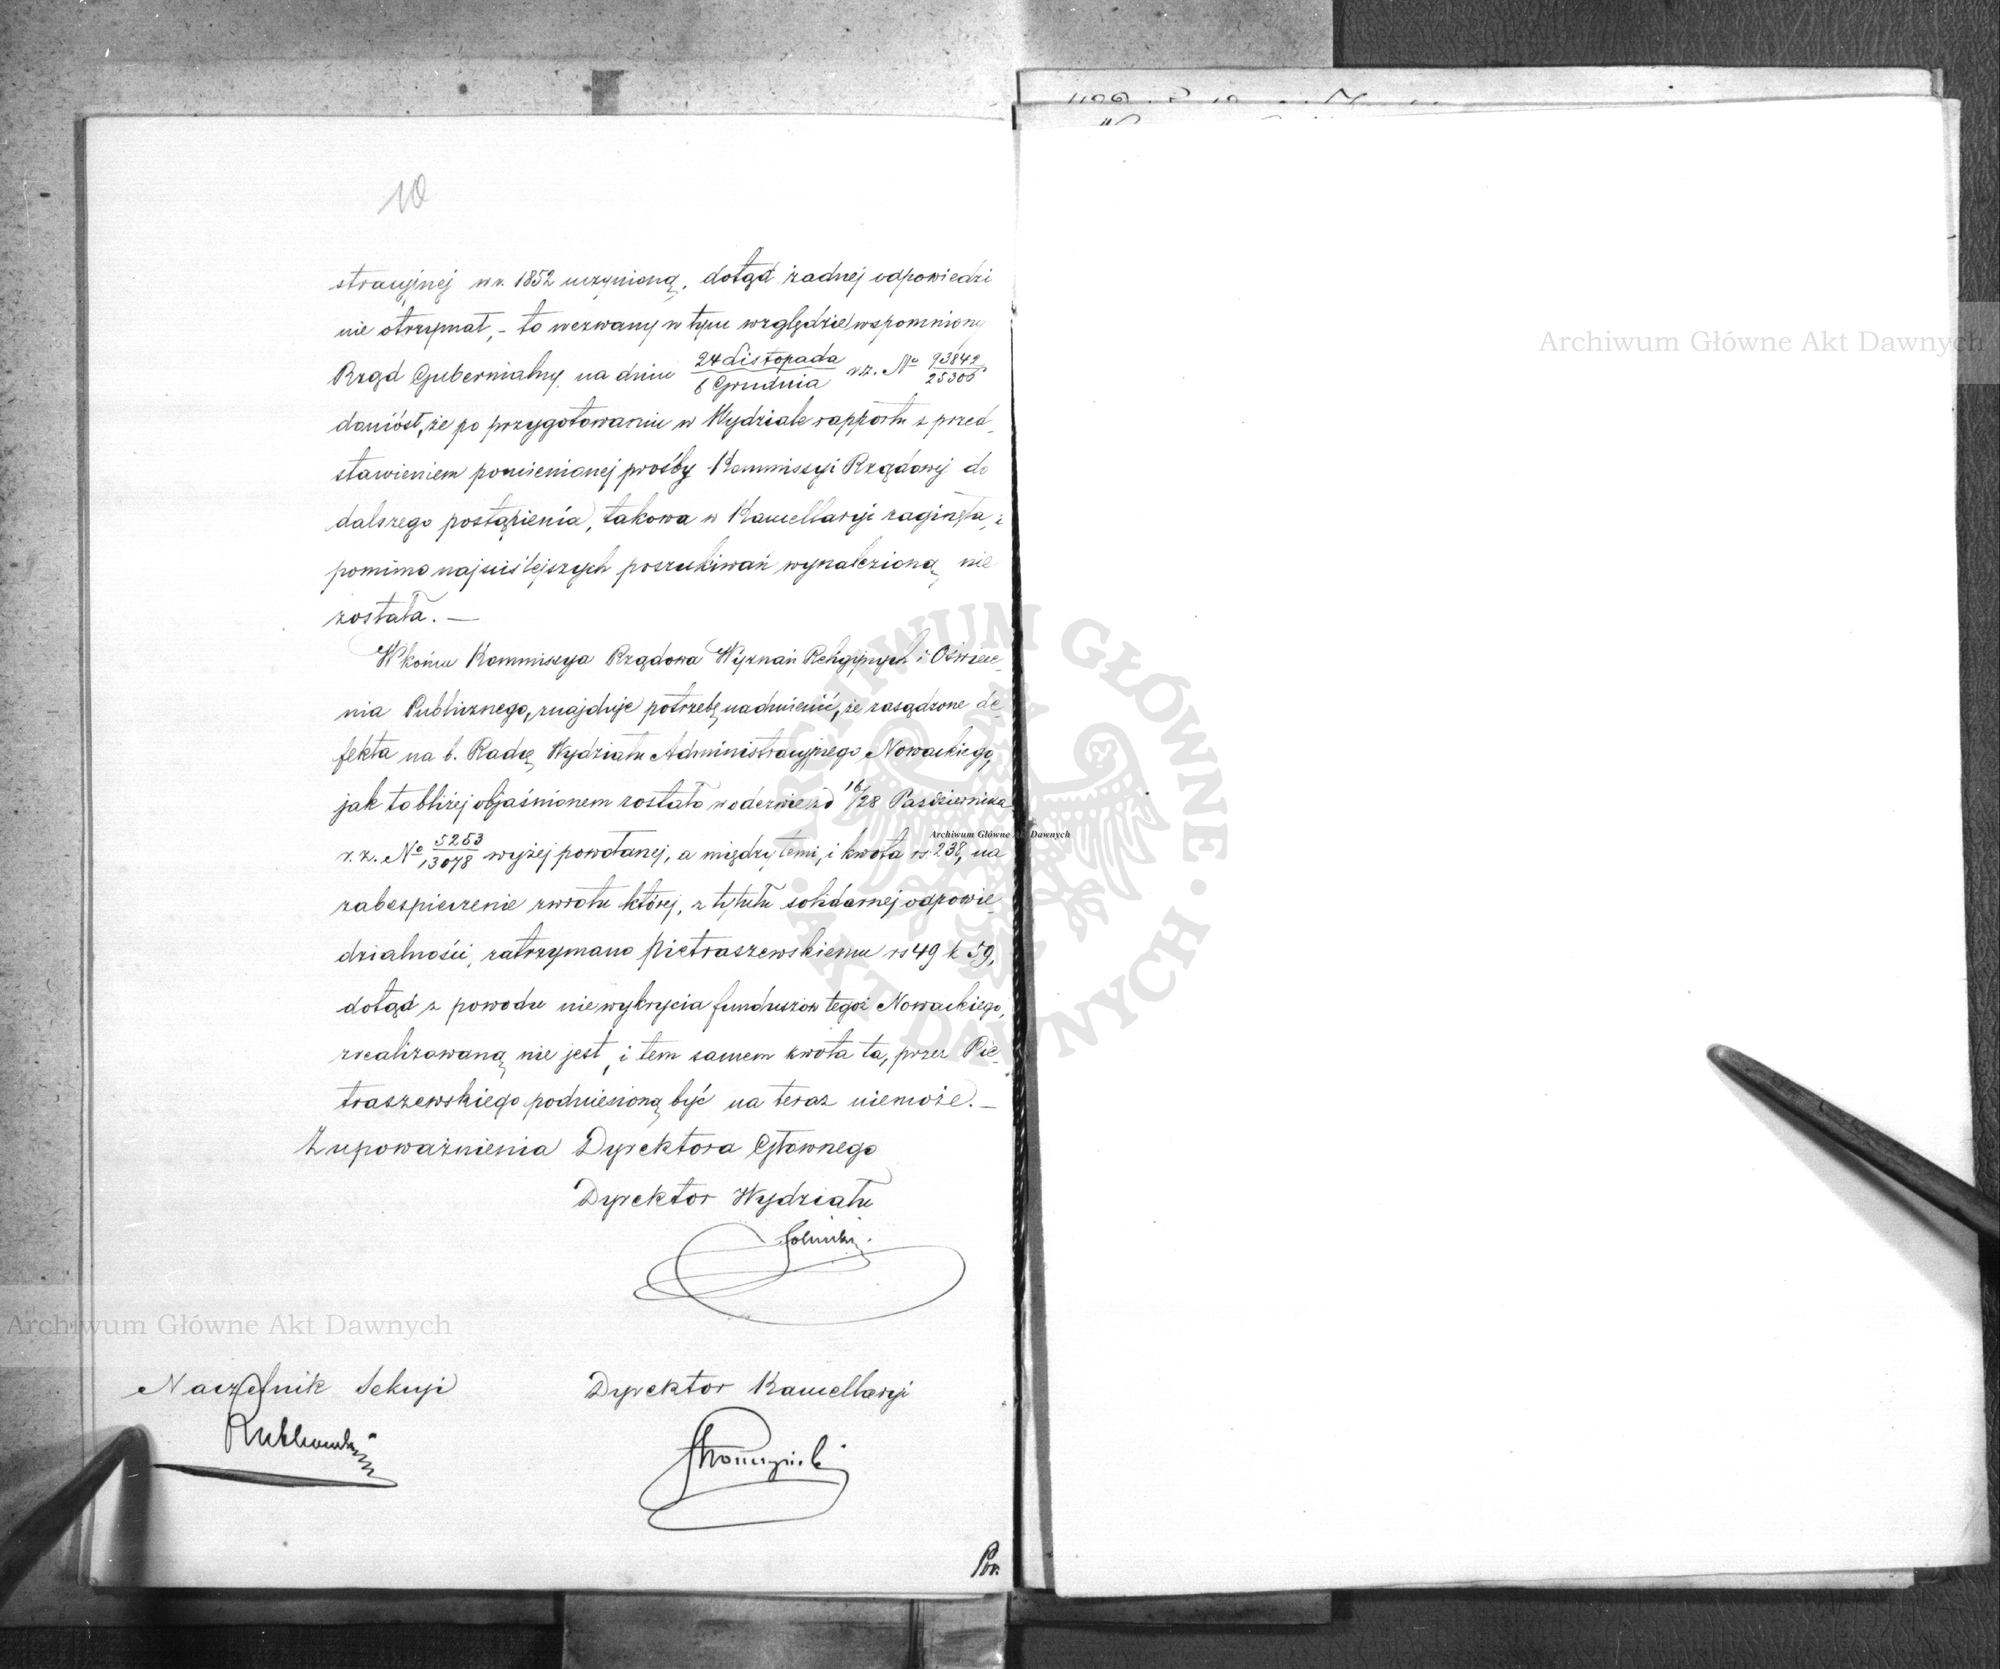 10
stracyjnej w r. 1852 uczynioną, dotąd żadnej odpowiedzi
nie otrzymał, – to wezwany w tym względzie wspomniony
Rząd Gubernialny na dniu 24 Listopada / 6 Grudnia r.z. No 93842 / 25305
doniósł, że po przygotowaniu w Wydziale rapportu z przed-
stawieniem pomienionej prośby Kommissyi Rządowej do
dalszego postąpienia, takowa w Kancellaryi zaginęła, i
pomimo najściślejszych poszukiwań wynalezioną nie
została. —
W końcu Kommissya Rządowa Wyznań Religijnych i Oświece-
nia Publicznego, znajduje potrzebę nadmienić, że zasądzone de-
fekta na b. Radcę Wydziału Administracyjnego Nowackiego,
jak to bliżej objaśnionem zostało w odezwie z d 16/28 Października
r.z. No 5253 / 13078 wyżej powołanej, a między temi, i kwota rs. 238, na
zabespieczenie zwrotu której, z tytułu solidarnej odpowie-
dzialności, zatrzymano Pietraszewskiemu rs 49 k 59,
dotąd z powodu niewykrycia funduszów tegoż Nowackiego,
zrealizowaną nie jest, i tem samem kwota ta, przez Pie-
traszewskiego podniesioną być na teraz niemoże. —
Z upoważnienia Dyrektora Głównego
Dyrektor Wydziału
Naczelnik Sekcyi
Dyrektor Kancellaryi
Archiwum Główne Akt Dawnych
Archiwum Główne Akt Dawnych
Archiwum Główne Akt Dawnych
ARCHIWUM GŁÓWNE AKT DAWNYCH